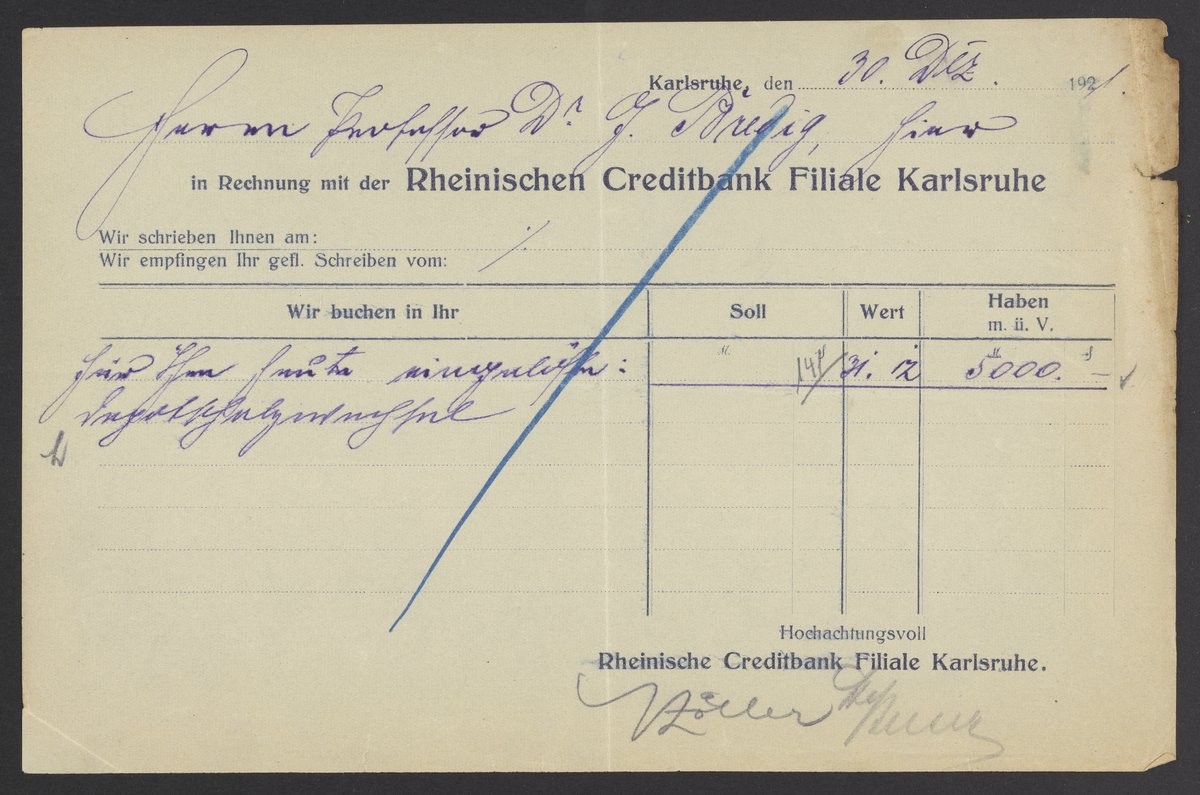 Karlsruhe, den 30. Dez. 1921.
Herrn Professor Dr. G. Bredig, hier
in Rechnung mit der Rheinischen Creditbank Filiale Karlsruhe
Wir schrieben Ihnen am:
Wir empfingen Ihr gefl. Schreiben vom: ·/.
Wir buchen in Ihr Soll Wert Haben
m. ü. V.
für Ihnen heute eingelöste: M. 31. 12 5000. –
Hochachtungsvoll
Rheinische Creditbank Filiale Karlsruhe.